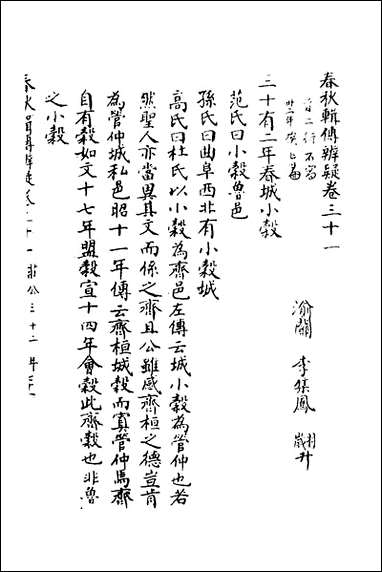 春秋輯傳辨疑卷三十一
渝關 李集鳳
三十有二年春城小穀
范氏曰小穀魯邑
孫氏曰曲阜西北有小穀城
高氏曰杜氏以小穀為齊邑左傳云城小穀為管仲也若
然聖人亦當異其文而係之齊且公雖感齊桓之德豈肯
為管仲城私邑昭十一年傳云齊桓城穀而寘管仲焉齊
自有穀如文十七年盟穀宣十四年會穀此齊穀也非魯
之小穀
春秋輯傳辨疑卷三十一 莊公三十二年